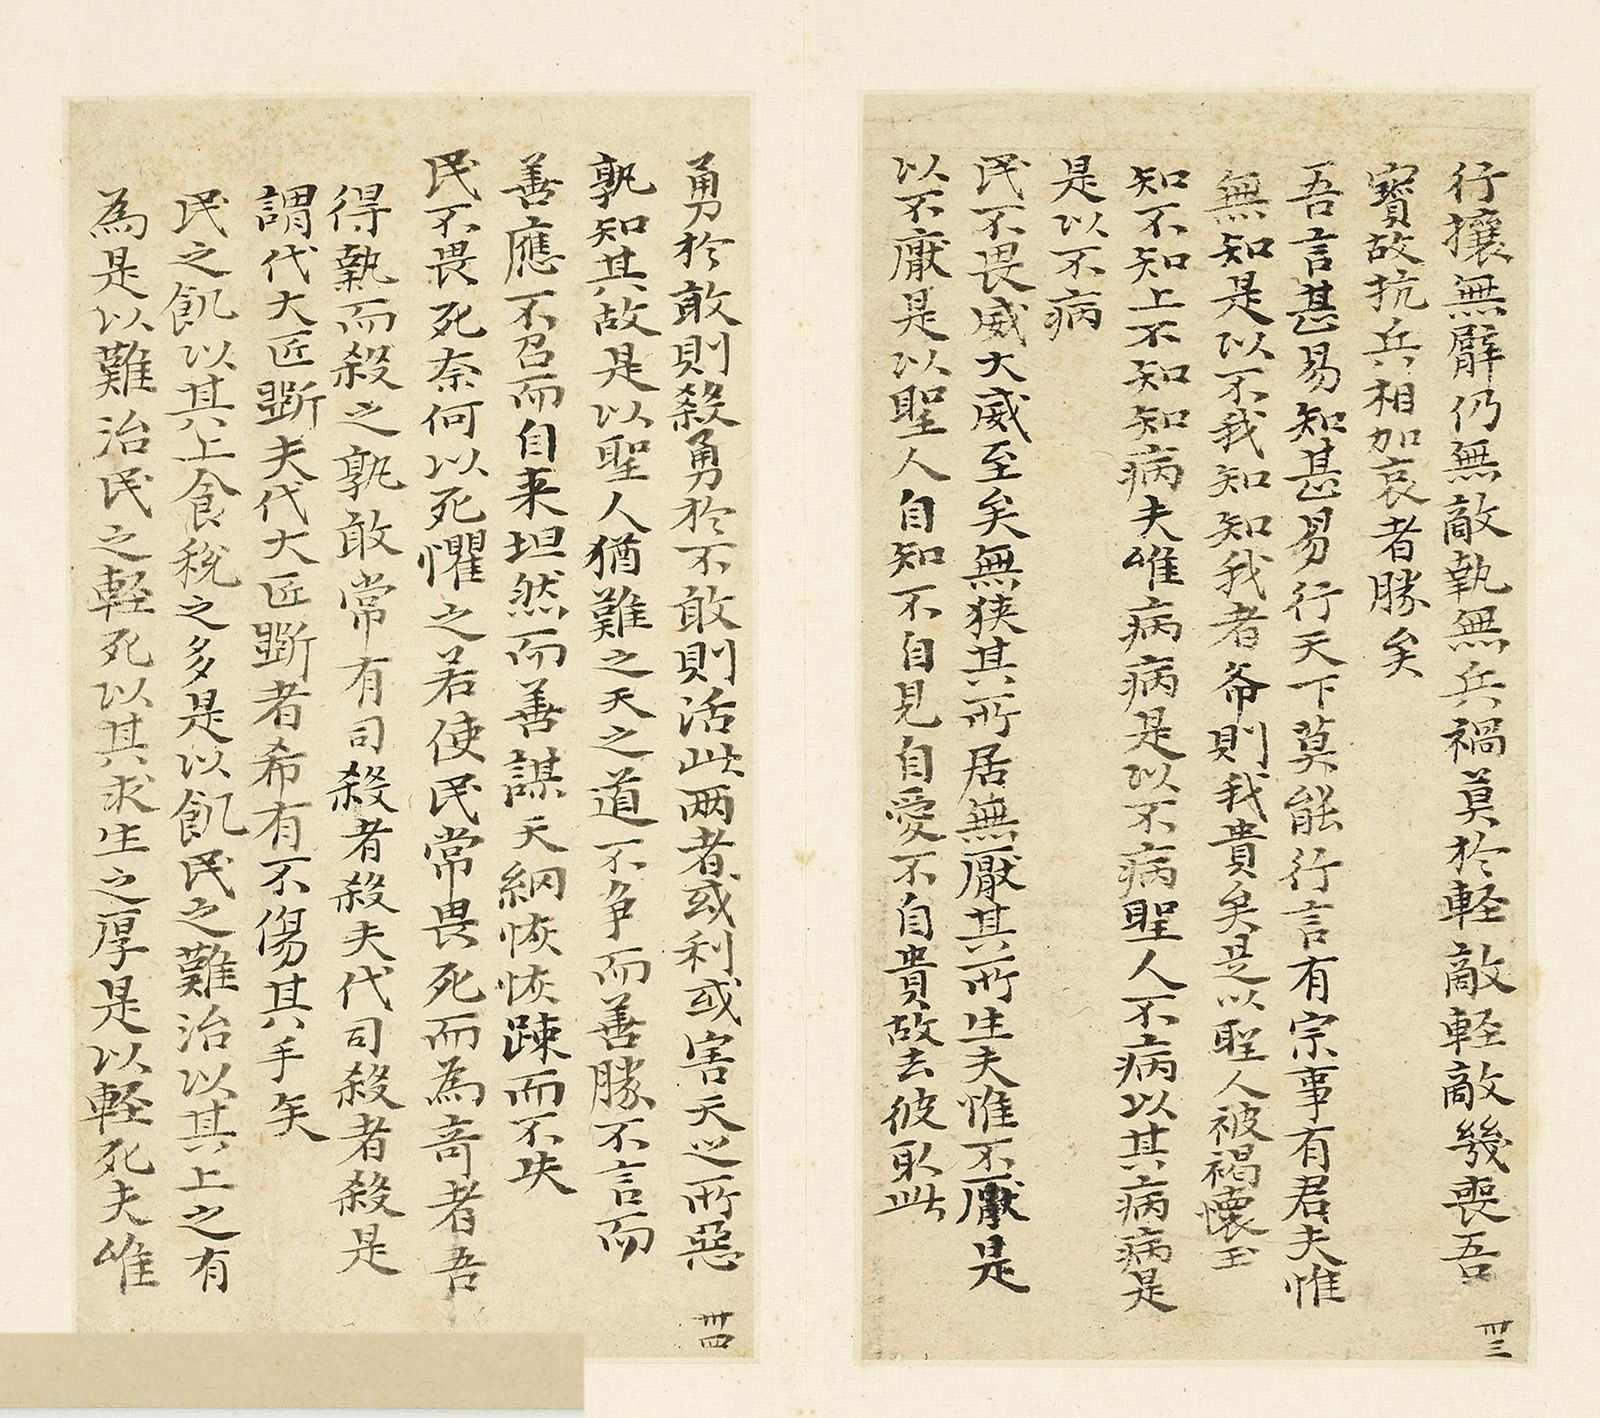 行攘無臂仍無敵執無兵禍莫於軽敵軽敵幾喪吾
寶故抗兵相加哀者勝矣
吾言甚易知甚易行天下莫能行言有宗事有君夫惟
無知是以不我知知我者希則我貴矣是以聖人被褐懷玉
知不知上不知知病夫唯病病是以不病聖人不病以其病病是
是以不病
民不畏威大威至矣無狭其所居無厭其所生夫惟不厭是
以不厭是以聖人自知不自見自愛不自貴故去彼取此
卅三
勇於敢則殺勇於不敢則活此两者或利或害天之所惡
孰知其故是以聖人猶難之天之道不争而善勝不言而
善應不召而自来坦然而善謀天網恢恢踈而不失
民不畏死奈何以死懼之若使民常畏死而為奇者吾
得執而殺之孰敢常有司殺者殺夫代司殺者殺是
謂代大匠斲夫代大匠斲者希有不傷其手矣
民之飢以其上食稅之多是以飢民之難治以其上之有
為是以難治民之軽死以其求生之厚是以軽死夫唯
卅四